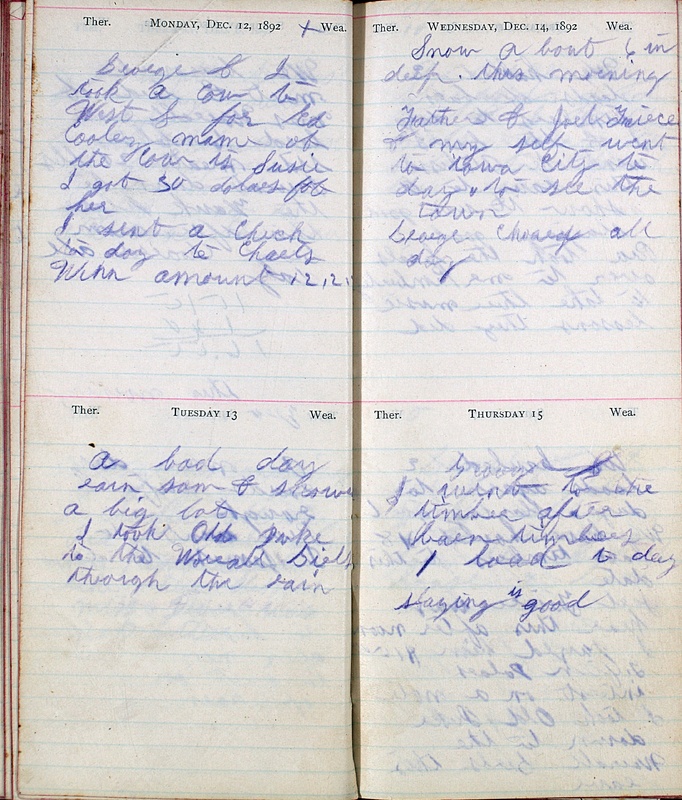 Ther. MONDAY, DEC. 12, 1892 Wea.
George & I
took a cow to
West for
Cooler, of
the Cow is Susie
I got 30 dolaes for
her
I sent a Check
to day to Charls
Winn amount 12,12,
Ther. TUESDAY 13 Wea.
a bad day
rain som & snow
a big lot
I took Old Duke
to the
through the rain
Ther. WEDNESDAY, DEC. 14, 1892 Wea.
Snow a bout 6 in
deep. this morning
Father & Joel
& my self went
to Iowa City to
day, to see the
town
George all
day
Ther. THURSDAY 15 Wea.
George &
I went to the
timber after
barn timber
1 load to day
slaying is good